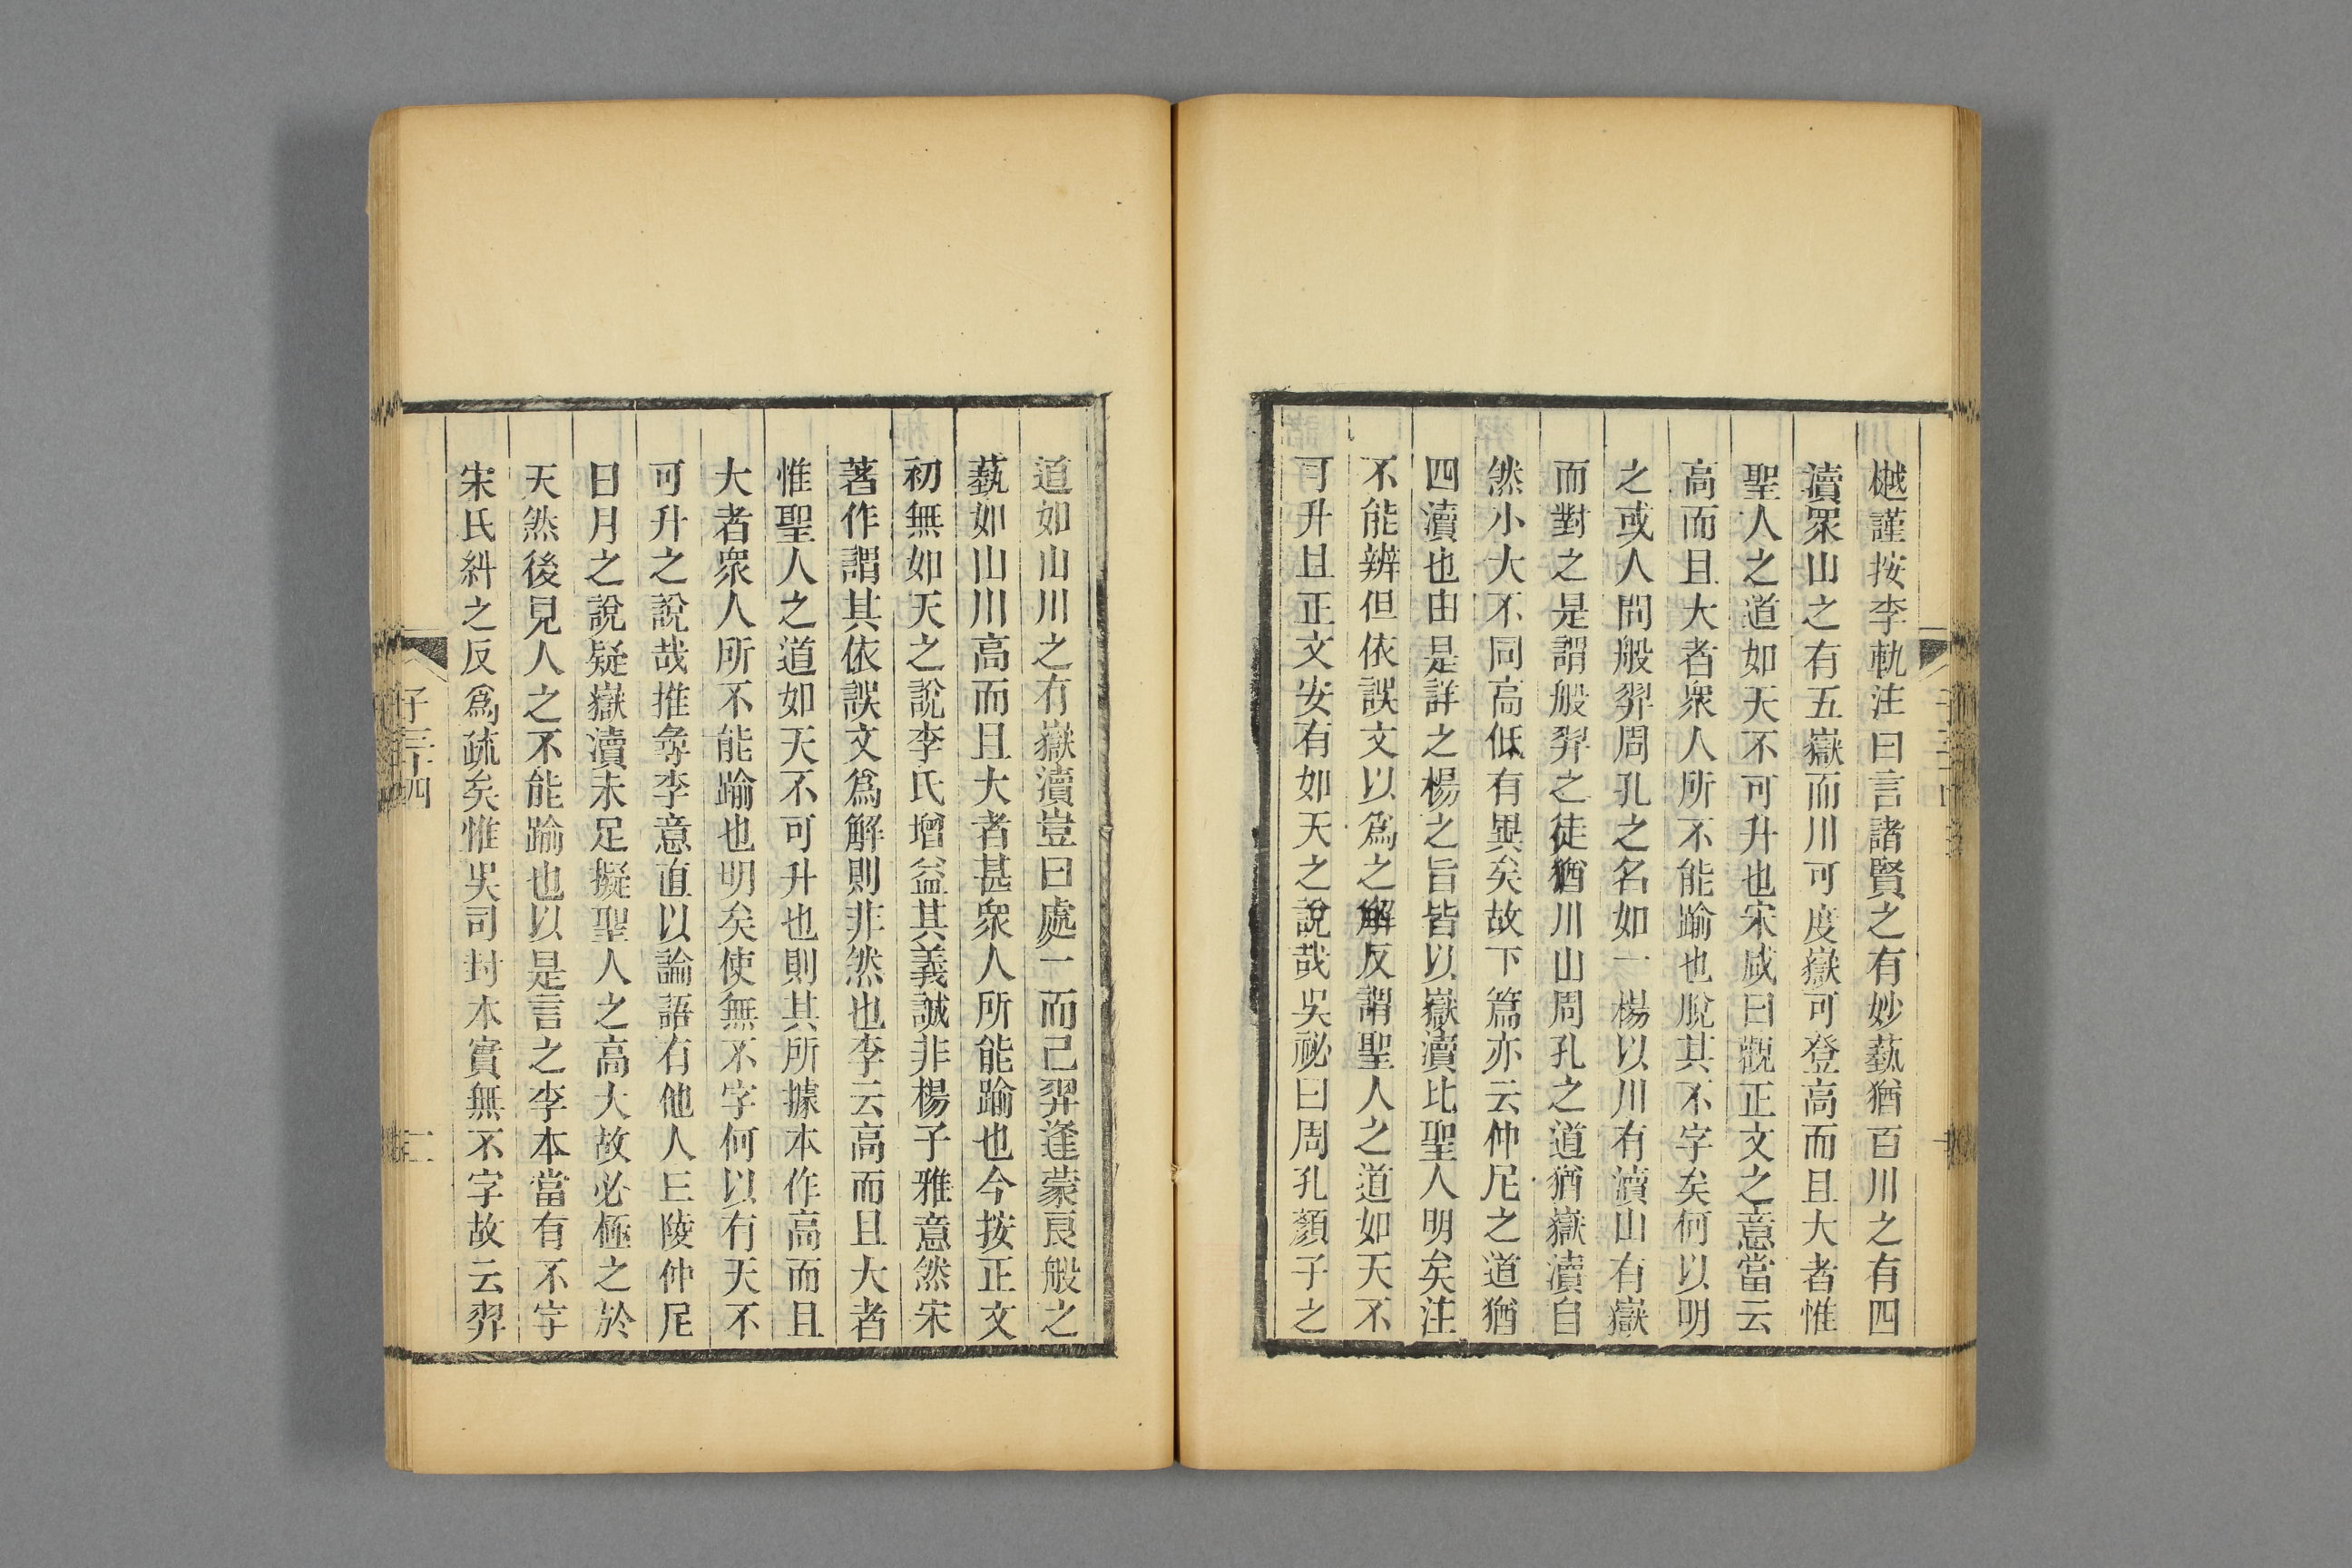 樾謹按李軌注曰言諸賢之有妙藝猶百川之有四
瀆眾山之有五嶽而川可度嶽可登高而且大者惟
聖人之道如天不可升也宋咸曰觀正文之意當云
高而且大者衆人所不能踰也脫其不字矣何以明
之或人問般羿周孔之名如一楊以川有瀆山有嶽
而對之是謂般羿之徒猶川山周孔之道猶嶽瀆自
然小大不同高低有異矣故下篇亦云仲尼之道猶
四瀆也由是詳之楊之旨皆以嶽瀆比聖人明矣注
不能辨但依誤文以爲之解反謂聖人之道如天不
可升且正文安有如天之說哉吳祕曰周孔顏子之
道如山川之有嶽瀆豈曰處一而已羿逢蒙良般之
藝如山川高而且大者甚衆人所能踰也今按正文
初無如天之說李氏增益其義誠非楊子雅意然宋
著作謂其依誤文爲解則非然也李云高而且大者
惟聖人之道如天不可升也則其所據本作高而且
大者衆人所不能踰也明矣使無不字何以有天不
可升之說哉推尋李意直以論語有他人丘陵仲尼
日月之說疑嶽瀆未足擬聖人之高大故必極之於
天然後見人之不能踰也以是言之李本當有不字
宋氏糾之反爲疏矣惟吳司封本實無不字故云羿
子三十四
二